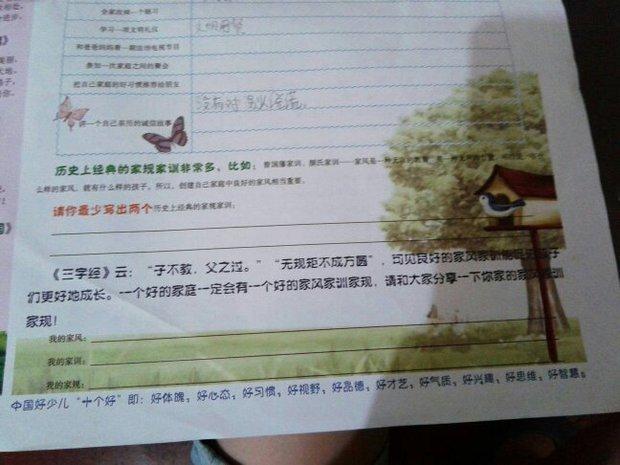 全家改掉一个陋习
学习一项文明礼仪
文明用餐
和爸爸妈妈看一期法治电视节目
参加一次家庭之间的聚会
把自己家庭的好习惯推荐给朋友
讲一个自己亲历的诚信故事
没有对
历史上经典的家规家训非常多，比如：曾国藩家训、颜氏家训……家风是一种无言的教育，
么样的家风，就有什么样的孩子。所以，创建自己家庭中良好的家风相当重要。
请你最少写出两个历史上经典的家规家训：
《三字经》云：“子不教，父之过。”“无规矩不成方圆”，可见良好的家风家训能
们更好地成长。一个好的家庭一定会有一个好的家风家训家规，请和大家分享一下你家的家风家训
家规！
我的家风：
我的家训：
我的家规：
中国好少儿“十个好”即：好体魄，好心态，好习惯，好视野，好品德，好才艺，好气质，好兴趣，好思维，好智慧。